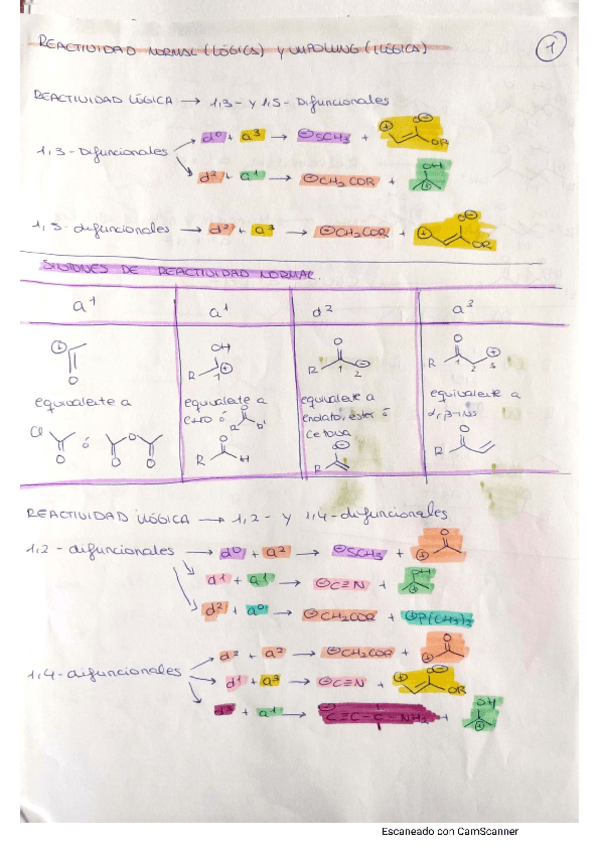 REACTIVIDAD NORMAL (LÓGICA) Y UMPOLUNG (ILÓGICA)
1
REACTIVIDAD LÓGICA → 1,3- Y 1,5- DIFUNCIONALES
1,3- DIFUNCIONALES
d⁰ + a³ → ⊖SCH₃ + ⊕ O⊖ OR
d² + a¹ → ⊖CH₂COR + OH ⊕
1,5- difuncionales → d² + a³ → ⊖CH₂COR + ⊕ O⊖ OR
SINTONES DE REACTIVIDAD NORMAL.
a¹ a¹ d² a³
⊕ O
R OH 1 ⊕
R O 1 2 ⊖
R O 1 2 3 ⊕
equivalente a equivalente a equivalente a equivalente a
enolato, ester ó
cetona
Cl O ó O O
R O H
R O⊖
R O
REACTIVIDAD ILÓGICA → 1,2- Y 1,4- difuncionales
1,2- difuncionales → d⁰ + a² → ⊖SCH₃ + ⊕ O
d¹ + a¹ → ⊖C≡N + OH ⊕
d² + a⁰ → ⊖CH₂COR + ⊕P(CH₃)₂
1,4- difuncionales
d² + a² → ⊖CH₂COR + ⊕ O
d¹ + a³ → ⊖C≡N + ⊕ O⊖ OR
d³ + a¹ → ⊖C≡C-C-NH₂ + OH ⊕
Escaneado con CamScanner